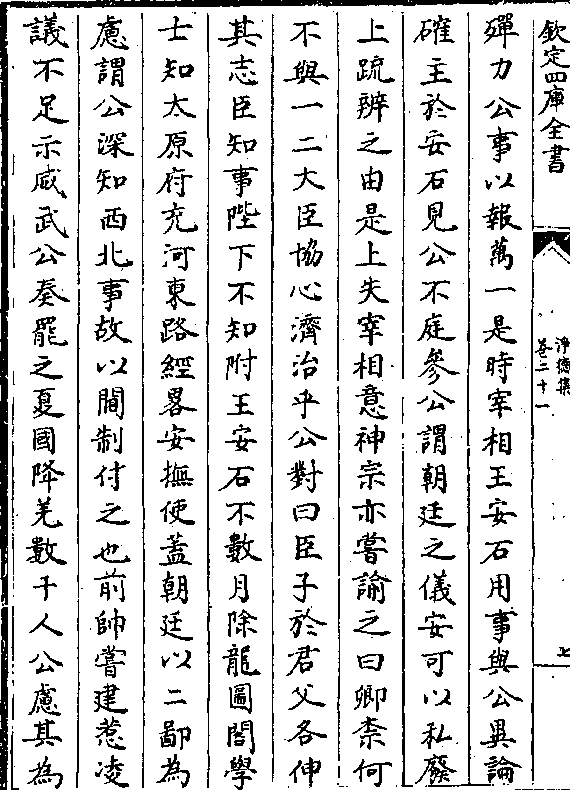 欽定四庫全書
淨德集
卷二十一
七
殫力公事以報萬一是時宰相王安石用事與公異論
確主於安石見公不庭參公謂朝廷之儀安可以私廢
上疏辨之由是上失宰相意神宗亦嘗諭之曰卿柰何
不與一二大臣協心濟治乎公對曰臣子於君父各伸
其志臣知事陛下不知附王安石不數月除龍圖閣學
士知太原府充河東路經畧安撫使蓋朝廷以二鄙為
慮謂公深知西北事故以閫制付之也前帥嘗建惹凌
議不足示威武公奏罷之夏國降羌數千人公慮其為